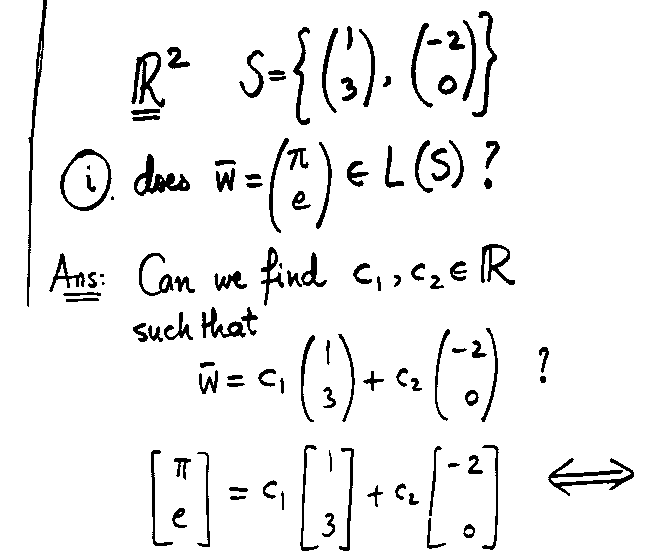 ℝ² S={(1 3), (-2 0)}
(i). does w̄ = (π e) ∈ L(S) ?
Ans: Can we find c₁, c₂ ∈ ℝ
such that
w̄ = c₁ (1 3) + c₂ (-2 0) ?
[π e] = c₁ [1 3] + c₂ [-2 0] ⟺